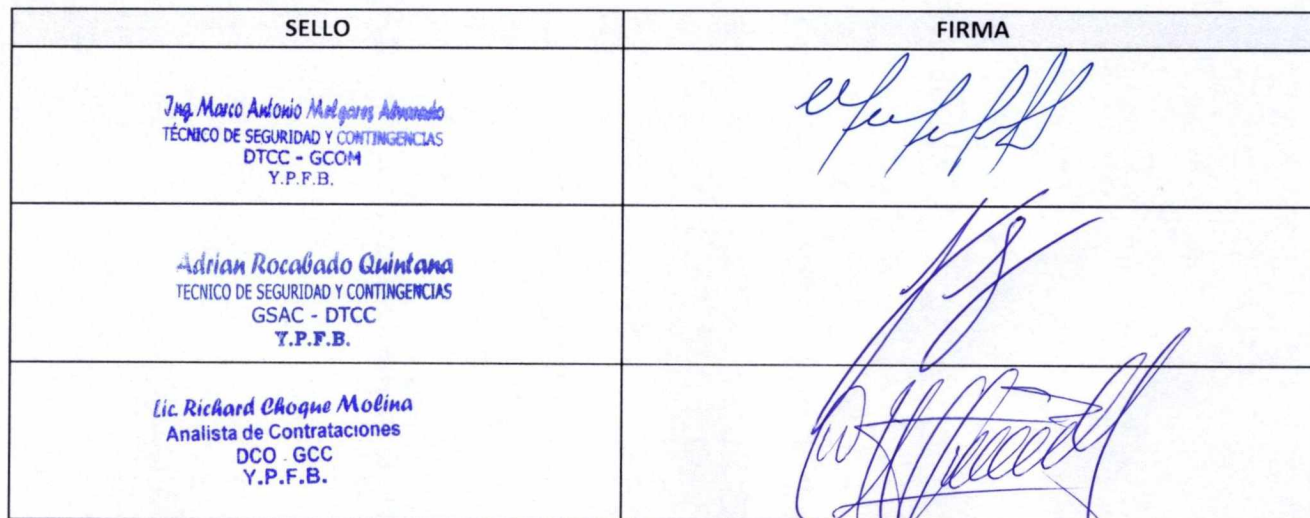 SELLO
FIRMA
Ing. Marco Antonio Melgares Alvarado
TÉCNICO DE SEGURIDAD Y CONTINGENCIAS
DTCC - GCOM
Y.P.F.B.
Adrian Rocabado Quintana
TECNICO DE SEGURIDAD Y CONTINGENCIAS
GSAC - DTCC
Y.P.F.B.
Lic. Richard Choque Molina
Analista de Contrataciones
DCO - GCC
Y.P.F.B.